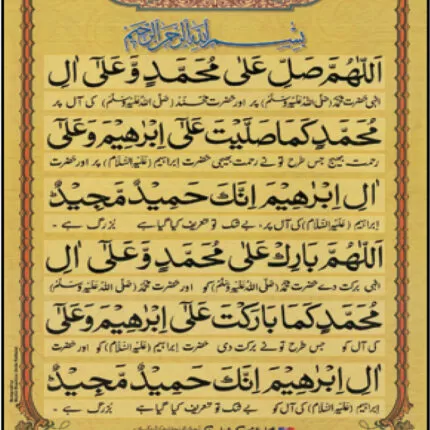 بِسْمِ اللهِ الرَّحْمٰنِ الرَّحِيْمِ
اَللّٰهُمَّ صَلِّ عَلٰى مُحَمَّدٍ وَّعَلٰٓى اٰلِ
الٰہی حضرت محمد (صلی اللہ علیہ وسلم) پر اور حضرت محمد (صلی اللہ علیہ وسلم) کی آل پر
مُحَمَّدٍ كَمَا صَلَّيْتَ عَلٰٓى اِبْرٰهِيْمَ وَعَلٰٓى
رحمت بھیج جس طرح تو نے رحمت بھیجی حضرت ابراہیم (علیہ السلام) پر اور حضرت
اٰلِ اِبْرٰهِيْمَ اِنَّكَ حَمِيْدٌ مَّجِيْدٌ
ابراہیم (علیہ السلام) کی آل پر، بے شک تو تعریف کیا گیا ہے بزرگ ہے ۔
اَللّٰهُمَّ بَارِكْ عَلٰى مُحَمَّدٍ وَّعَلٰٓى اٰلِ
الٰہی برکت دے حضرت محمد (صلی اللہ علیہ وسلم) کو اور حضرت محمد (صلی اللہ علیہ وسلم)
مُحَمَّدٍ كَمَا بَارَكْتَ عَلٰٓى اِبْرٰهِيْمَ وَعَلٰٓى
کی آل کو جس طرح تو نے برکت دی حضرت ابراہیم (علیہ السلام) کو اور حضرت
اٰلِ اِبْرٰهِيْمَ اِنَّكَ حَمِيْدٌ مَّجِيْدٌ
ابراہیم (علیہ السلام) کی آل کو بے شک تو تعریف کیا گیا ہے بزرگ ہے ۔